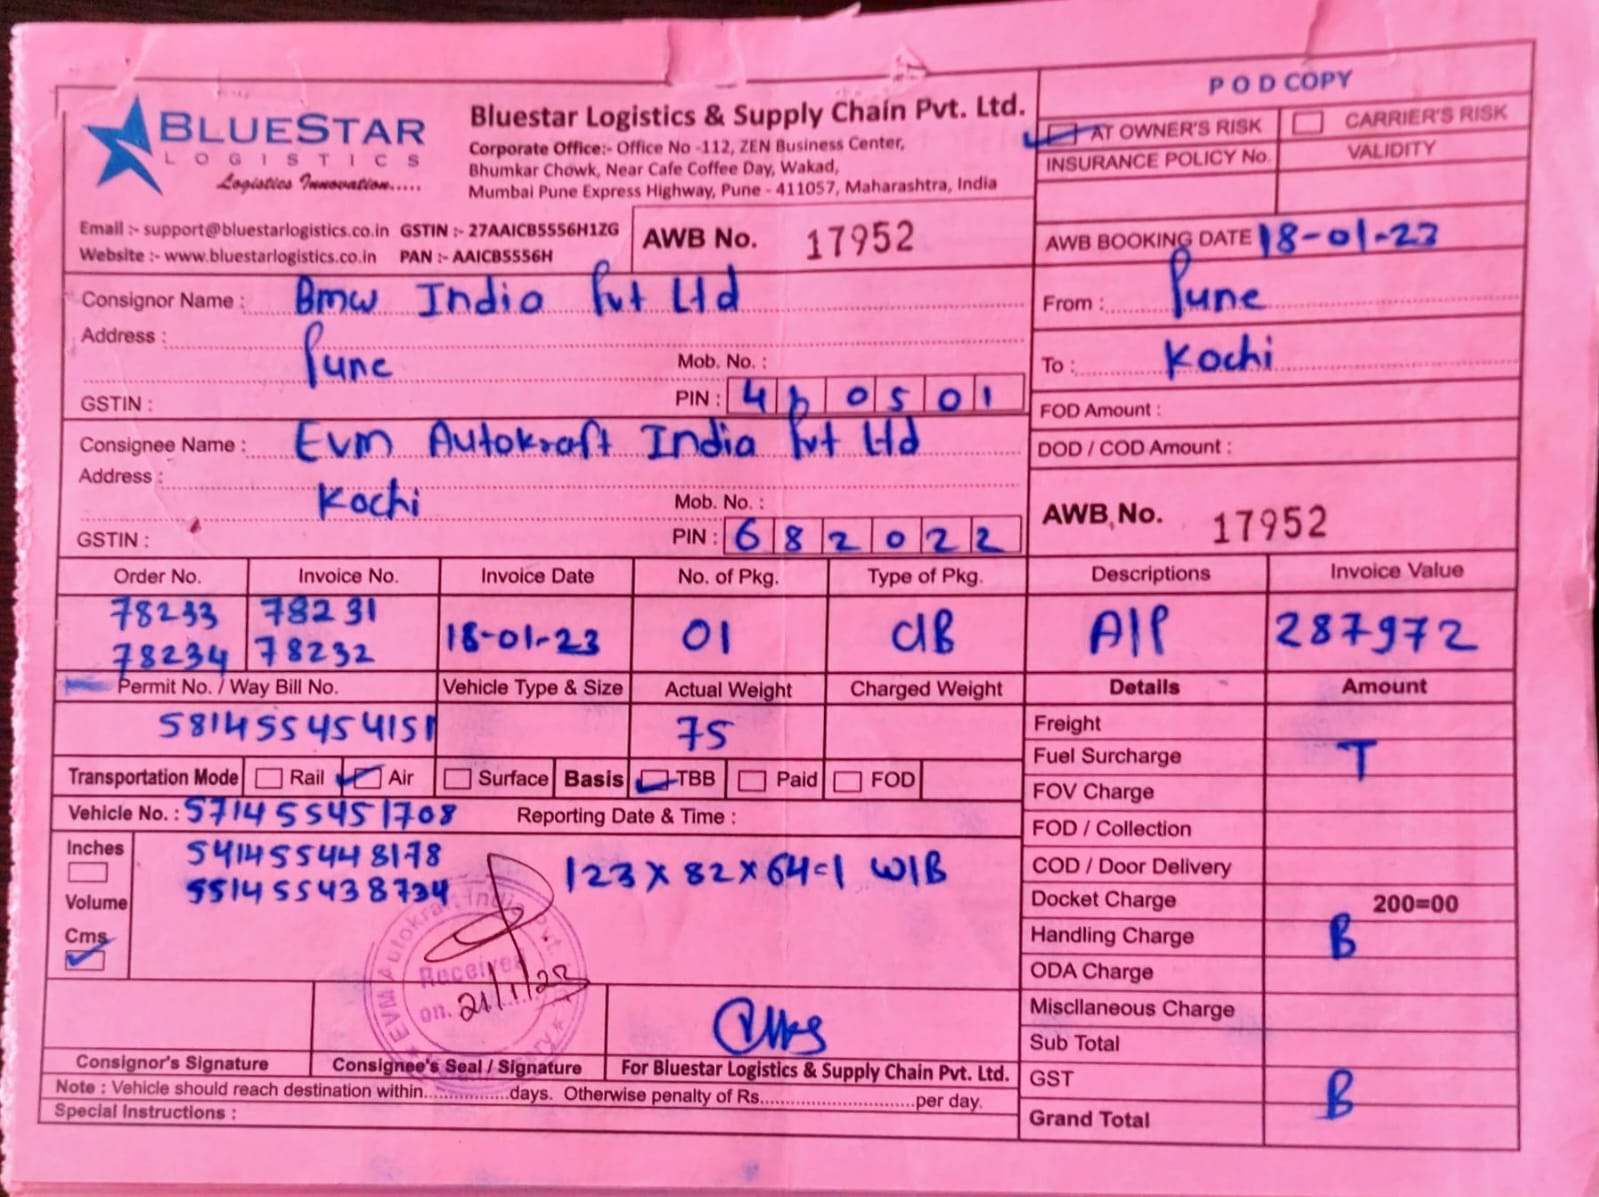 P O D COPY
BLUESTAR
LOGISTICS
Logistics Innovation.....
Bluestar Logistics & Supply Chain Pvt. Ltd.
Corporate Office:- Office No -112, ZEN Business Center,
Bhumkar Chowk, Near Cafe Coffee Day, Wakad,
Mumbai Pune Express Highway, Pune - 411057, Maharashtra, India
AT OWNER'S RISK CARRIER'S RISK
INSURANCE POLICY No. VALIDITY
Email :- support@bluestarlogistics.co.in GSTIN :- 27AAICB5556H1ZG
Website :- www.bluestarlogistics.co.in PAN :- AAICB5556H
AWB No. 17952
AWB BOOKING DATE 18-01-23
Consignor Name : Bmw India Pvt Ltd
Address :
Pune
Mob. No. :
GSTIN : PIN : 410501
From : Pune
To : Kochi
FOD Amount :
DOD / COD Amount :
Consignee Name : Evm Autokraft India Pvt Ltd
Address :
Kochi
Mob. No. :
GSTIN : PIN : 682022
AWB No. 17952
Order No. Invoice No. Invoice Date No. of Pkg. Type of Pkg. Descriptions Invoice Value
78233 78231 18-01-23 01 CIB A/P 287972
78234 78232
Permit No. / Way Bill No. Vehicle Type & Size Actual Weight Charged Weight Details Amount
581455454151 75
Transportation Mode Rail Air Surface Basis TBB Paid FOD
Vehicle No. : 571455451708 Reporting Date & Time :
Inches
Volume
Cms
541455448178
551455438734
123 x 82 x 64=1 W/B
Freight
Fuel Surcharge T
FOV Charge
FOD / Collection
COD / Door Delivery
Docket Charge 200=00
Handling Charge B
ODA Charge
Miscllaneous Charge
Sub Total
GST B
Grand Total
EVM Autokraft India Pvt.
Received
on. 21/1/23
Consignor's Signature Consignee's Seal / Signature For Bluestar Logistics & Supply Chain Pvt. Ltd.
Note : Vehicle should reach destination within.................days. Otherwise penalty of Rs..............................per day.
Special Instructions :